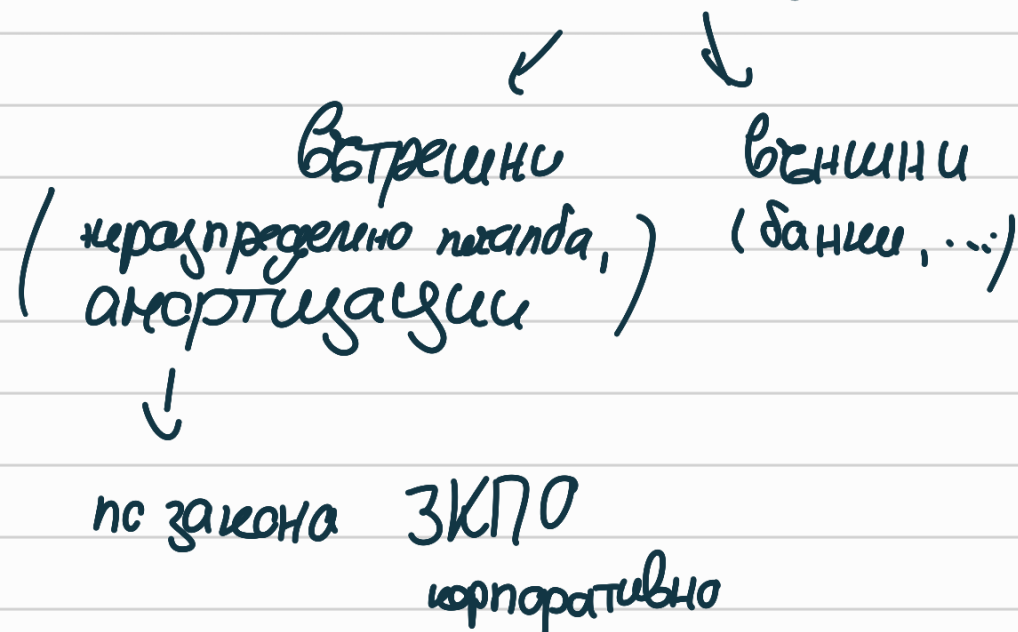 вътрешни външни
(неразпределено печалба, ) (банки, ...)
амортизации
по закона ЗКПО
корпоративно